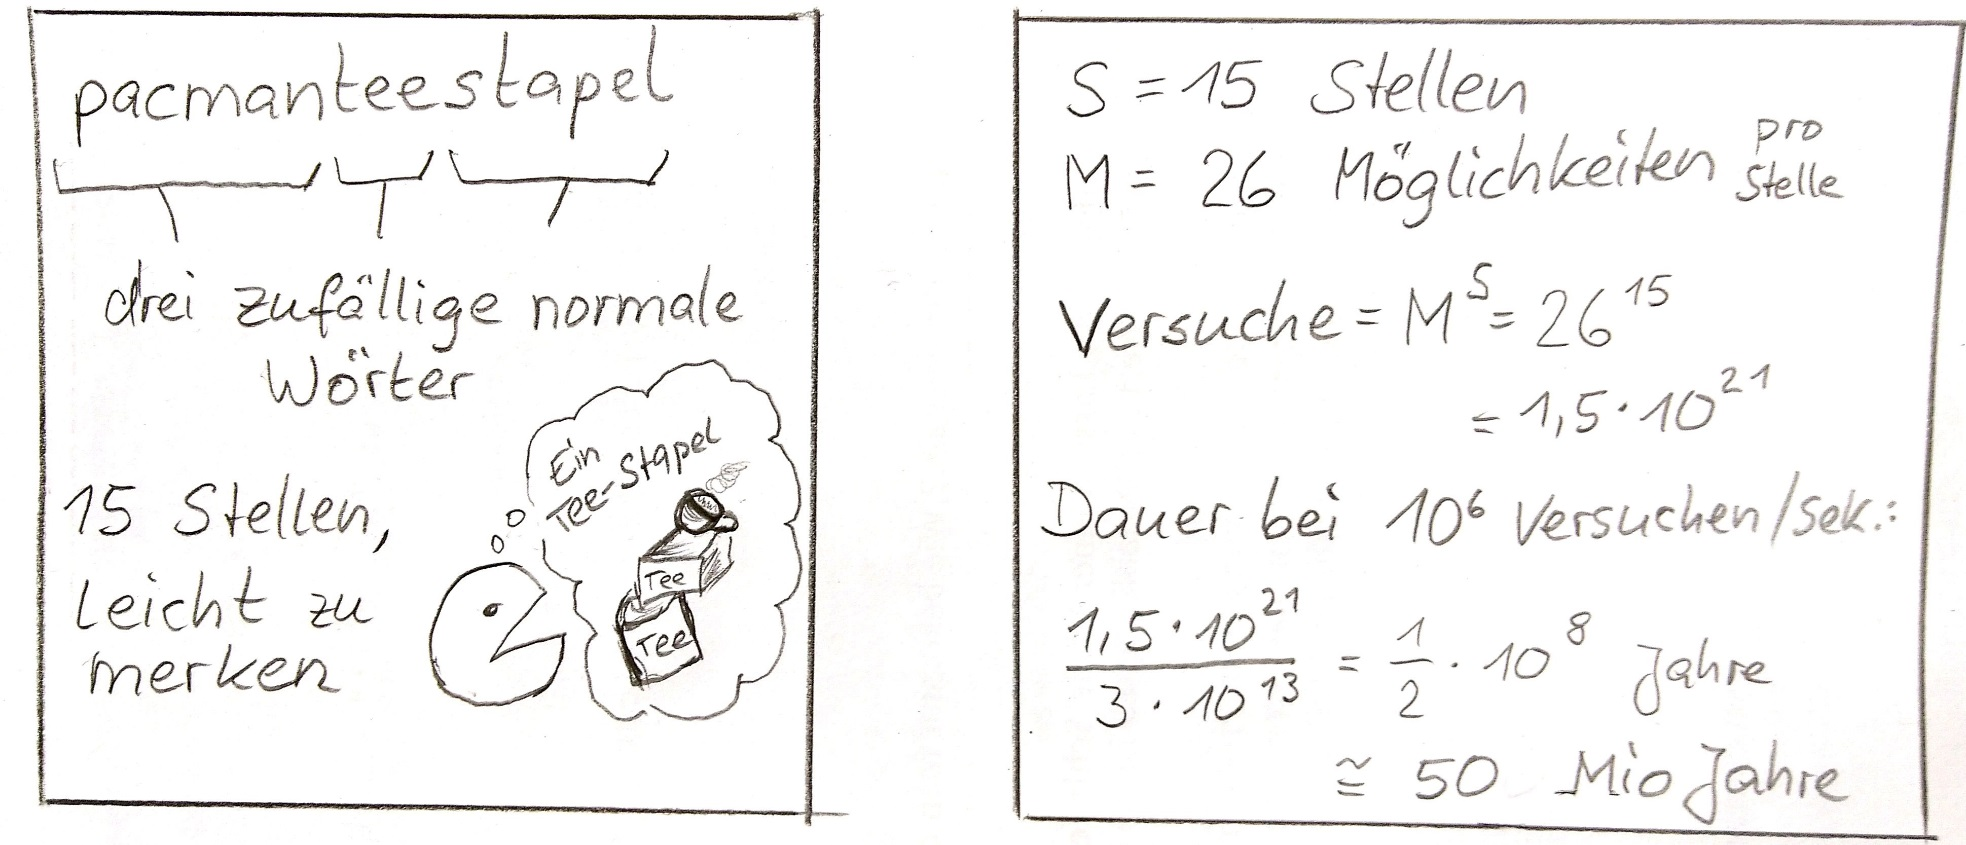 pacmanteestapel
drei zufällige normale
Wörter
15 Stellen,
leicht zu
merken
Ein
Tee-Stapel
Tee
Tee
S = 15 Stellen
M = 26 Möglichkeiten pro Stelle
Versuche = M^S = 26^15
= 1,5 · 10^21
Dauer bei 10^6 Versuchen/Sek.:
1,5 · 10^21 / 3 · 10^13 = 1/2 · 10^8 Jahre
≅ 50 Mio Jahre